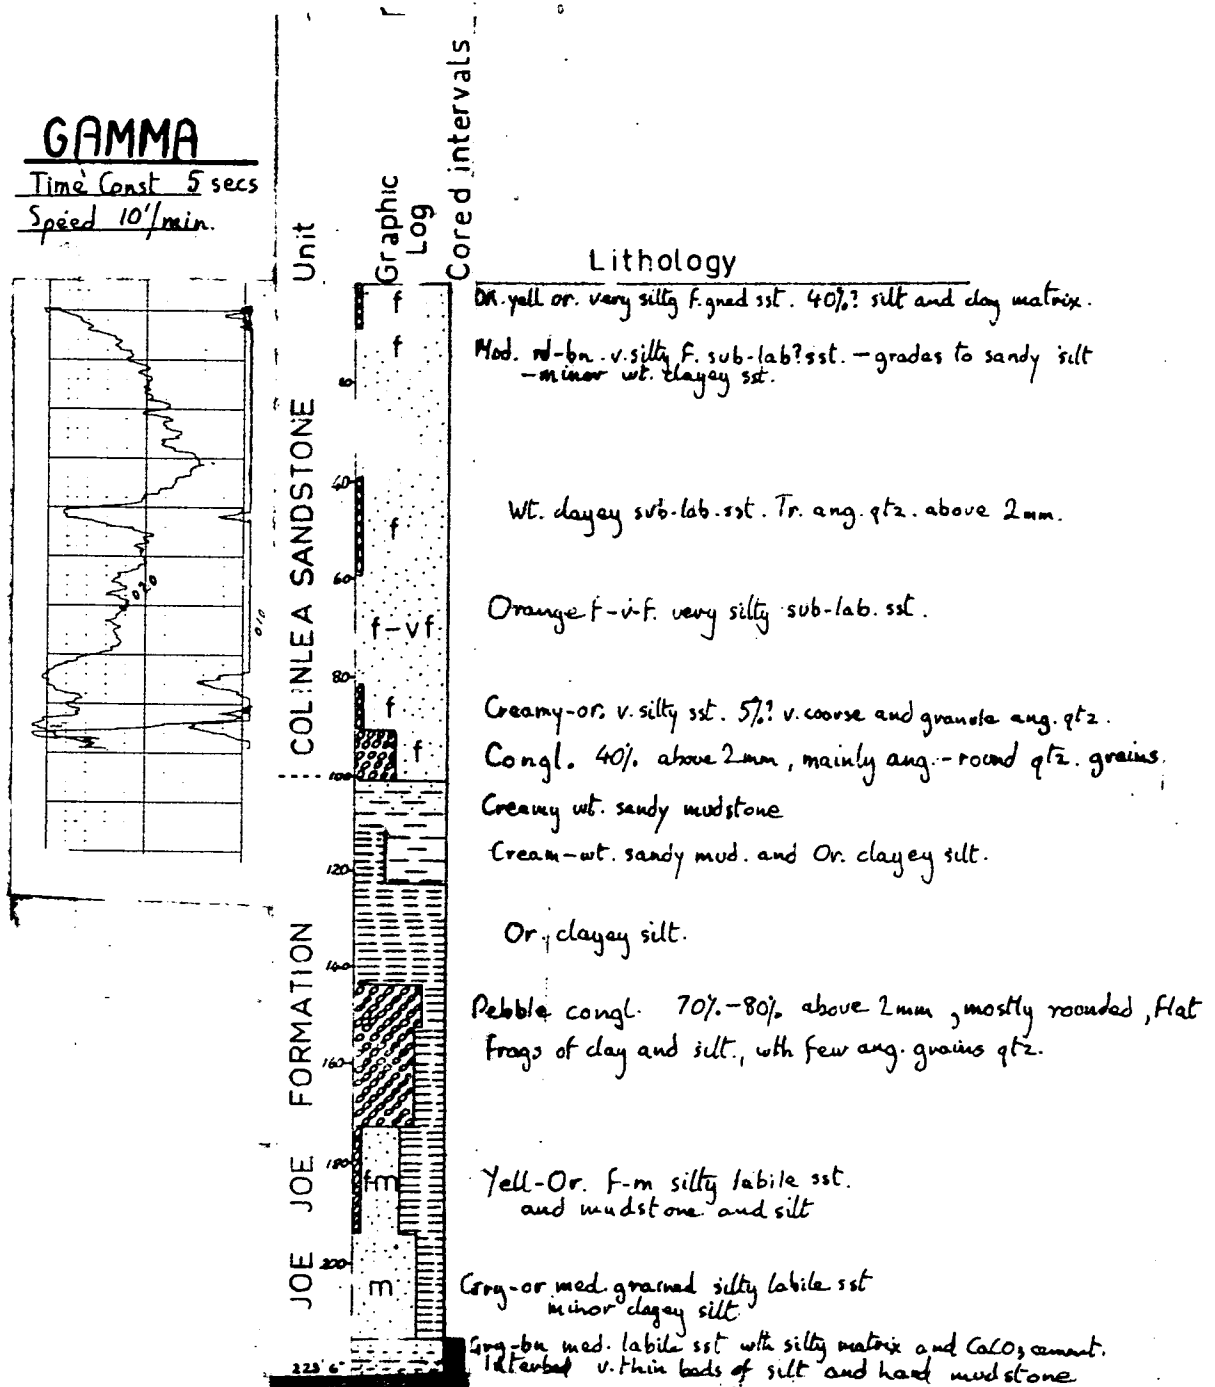 GAMMA
Time Const 5 secs
Speed 10'/min.
Unit
Graphic Log
Cored intervals
Lithology
COLINLEA SANDSTONE
JOE JOE FORMATION
020
010
f
f
f
f-vf
f
f
fm
m
20
40
60
80
100
120
140
160
180
200
223' 6"
Dk. yell or. very silty f. gned sst. 40%? silt and clay matrix.
Mod. rd-bn. v. silty F. sub-lab? sst. - grades to sandy silt
- minor wt. clayey sst.
Wt. clayey sub-lab. sst. Tr. ang. qtz. above 2mm.
Orange f-v-f. very silty sub-lab. sst.
Creamy-or. v. silty sst. 5%? v. coarse and granule ang. qtz.
Congl. 40% above 2mm, mainly ang.-round qtz. grains.
Creamy wt. sandy mudstone
Cream-wt. sandy mud. and Or. clayey silt.
Or. clayey silt.
Pebble congl. 70%-80% above 2mm, mostly rounded, flat
frags of clay and silt., wth few ang. grains qtz.
Yell-Or. f-m silty labile sst.
and mudstone and silt
Gry-or med. grained silty labile sst
minor clayey silt.
Gry-bn med. labile sst wth silty matrix and CaCO3 cement.
Interbed v. thin beds of silt and hard mudstone